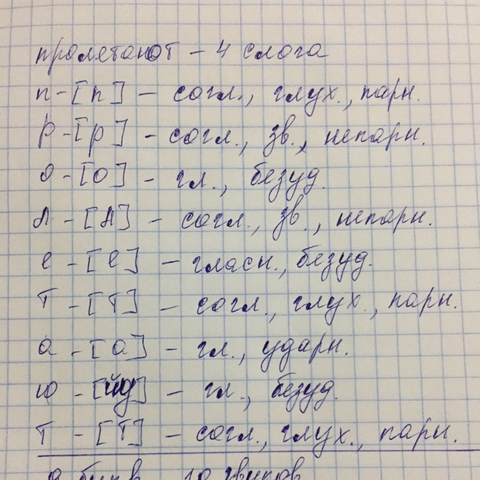 пролетают – 4 слога
п - [п] – согл., глух., парн.
р - [р] – согл., зв., непарн.
о - [о] – гл., безуд.
л - [л] – согл., зв., непарн.
е - [е] – гласн., безуд.
т - [т] – согл., глух., парн.
а - [а] – гл., ударн.
ю - [йу] – гл., безуд.
т - [т] – согл., глух., парн.
9 букв 10 звуков